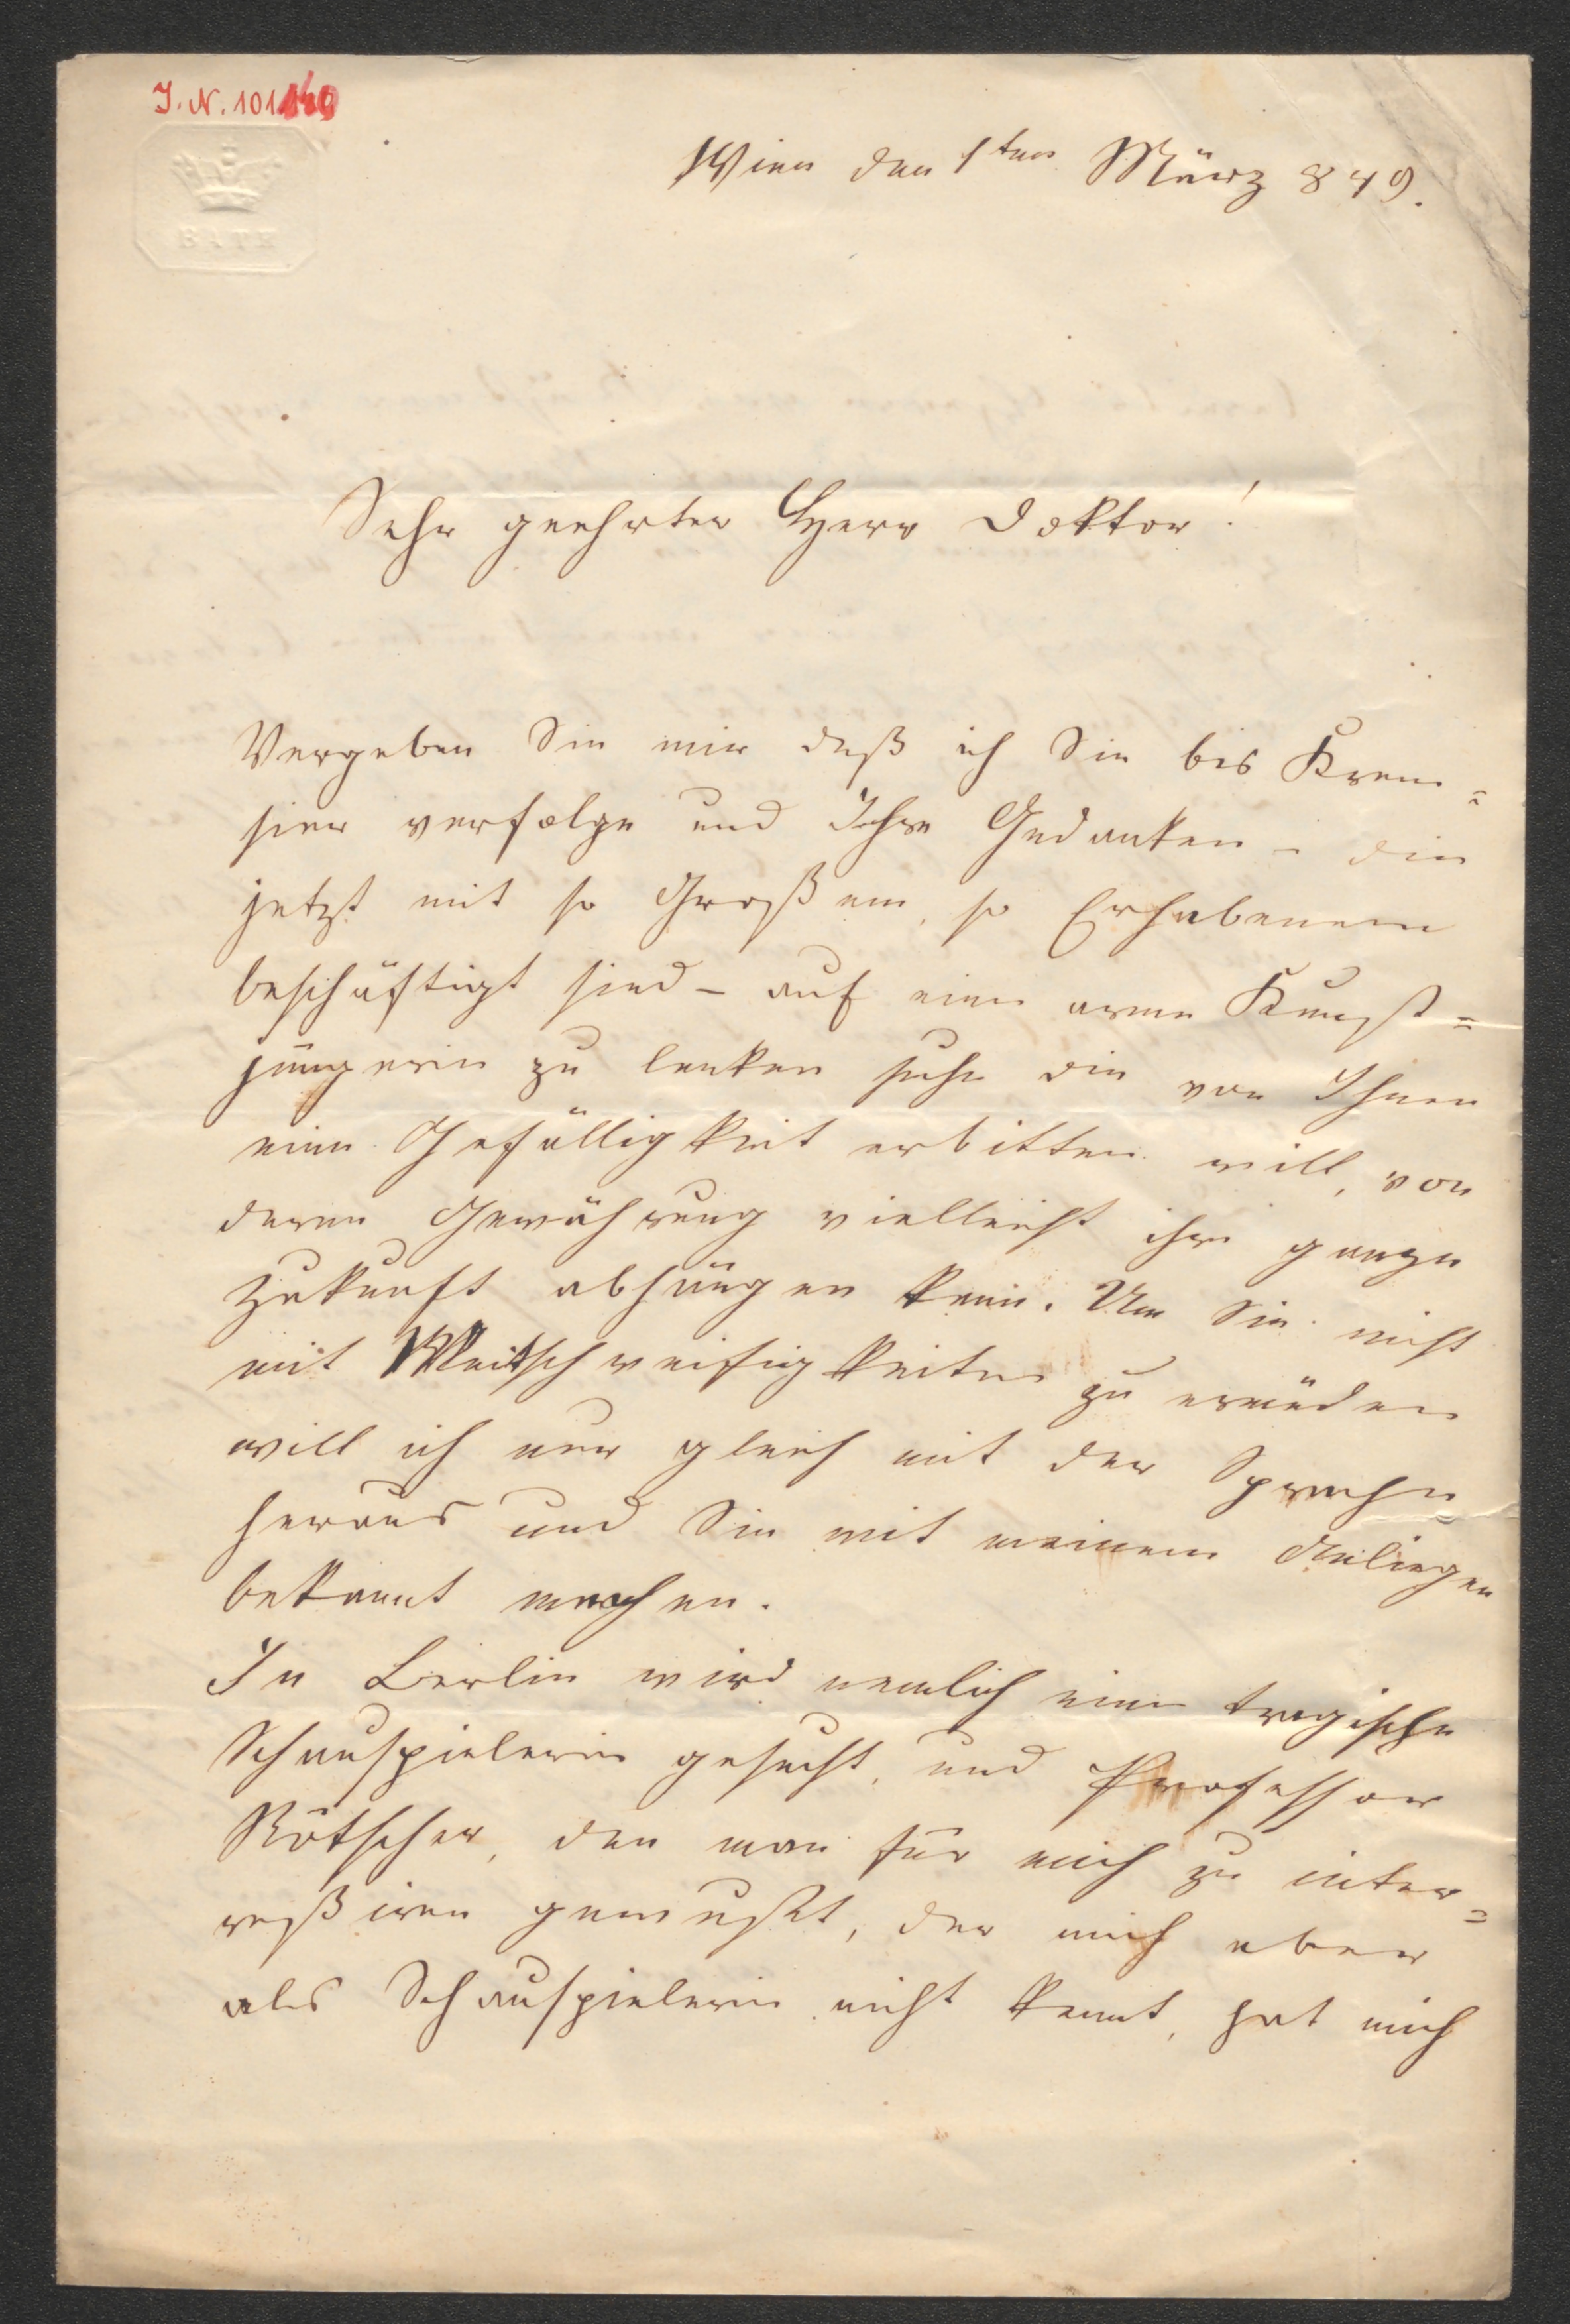 J. N. 101
BATH
Wien den 1ten März 849.
Sehr geehrter Herr Doktor!
Vergeben Sie mir daß ich Sie bis Krem=
sier verfolge und Ihre Gedanken - die
jetzt mit so Großem, so Erhabenem
beschäftigt sind - auf eine arme Kunst=
jüngerin zu lenken suche die von Ihnen
eine Gefälligkeit erbitten will, von
deren Gewährung vielleicht ihre ganze
Zukunft abhängen kann. Um Sie nicht
mit Weitschweifigkeiten zu ermüden
will ich nur gleich mit der Sprache
heraus und Sie mit meinem Anliegen
bekannt machen.
In Berlin wird nemlich eine tragische
Schauspielerin gesucht, und Professor
Rötscher, den man für mich zu inter=
reßiren gewußt, der mich aber
als Schauspielerin nicht kennt, hat mich